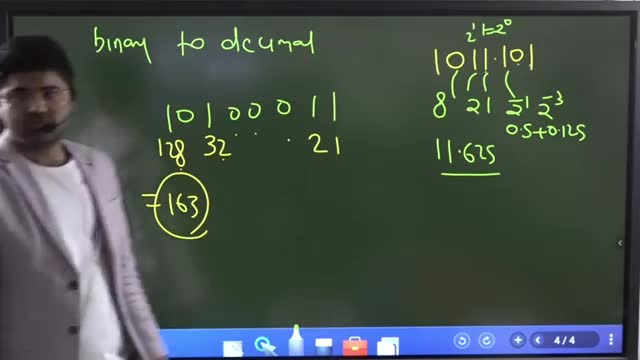 binary to decimal
10100011
128 32 21
=163
2¹ 1=2⁰
1011.101
8 21 2⁻¹ 2⁻³
0.5+0.125
11.625
4/4